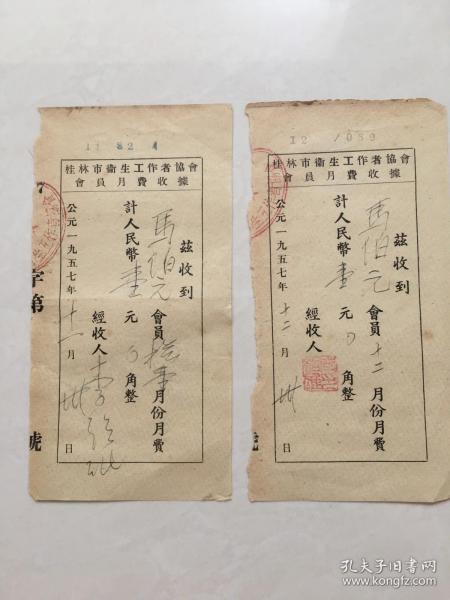 11 82
桂林市衛生工作者協會
會員月費收據
茲收到
馬伯元會員 月份月費
計人民幣壹元0角整
經收人李
公元一九五七年十一月卅日
字第
號
12 1089
桂林市衛生工作者協會
會員月費收據
茲收到
馬伯元會員十二月份月費
計人民幣壹元0角整
經收人
公元一九五七年十二月卅日
號
孔夫子旧書网
www.kongfz.com